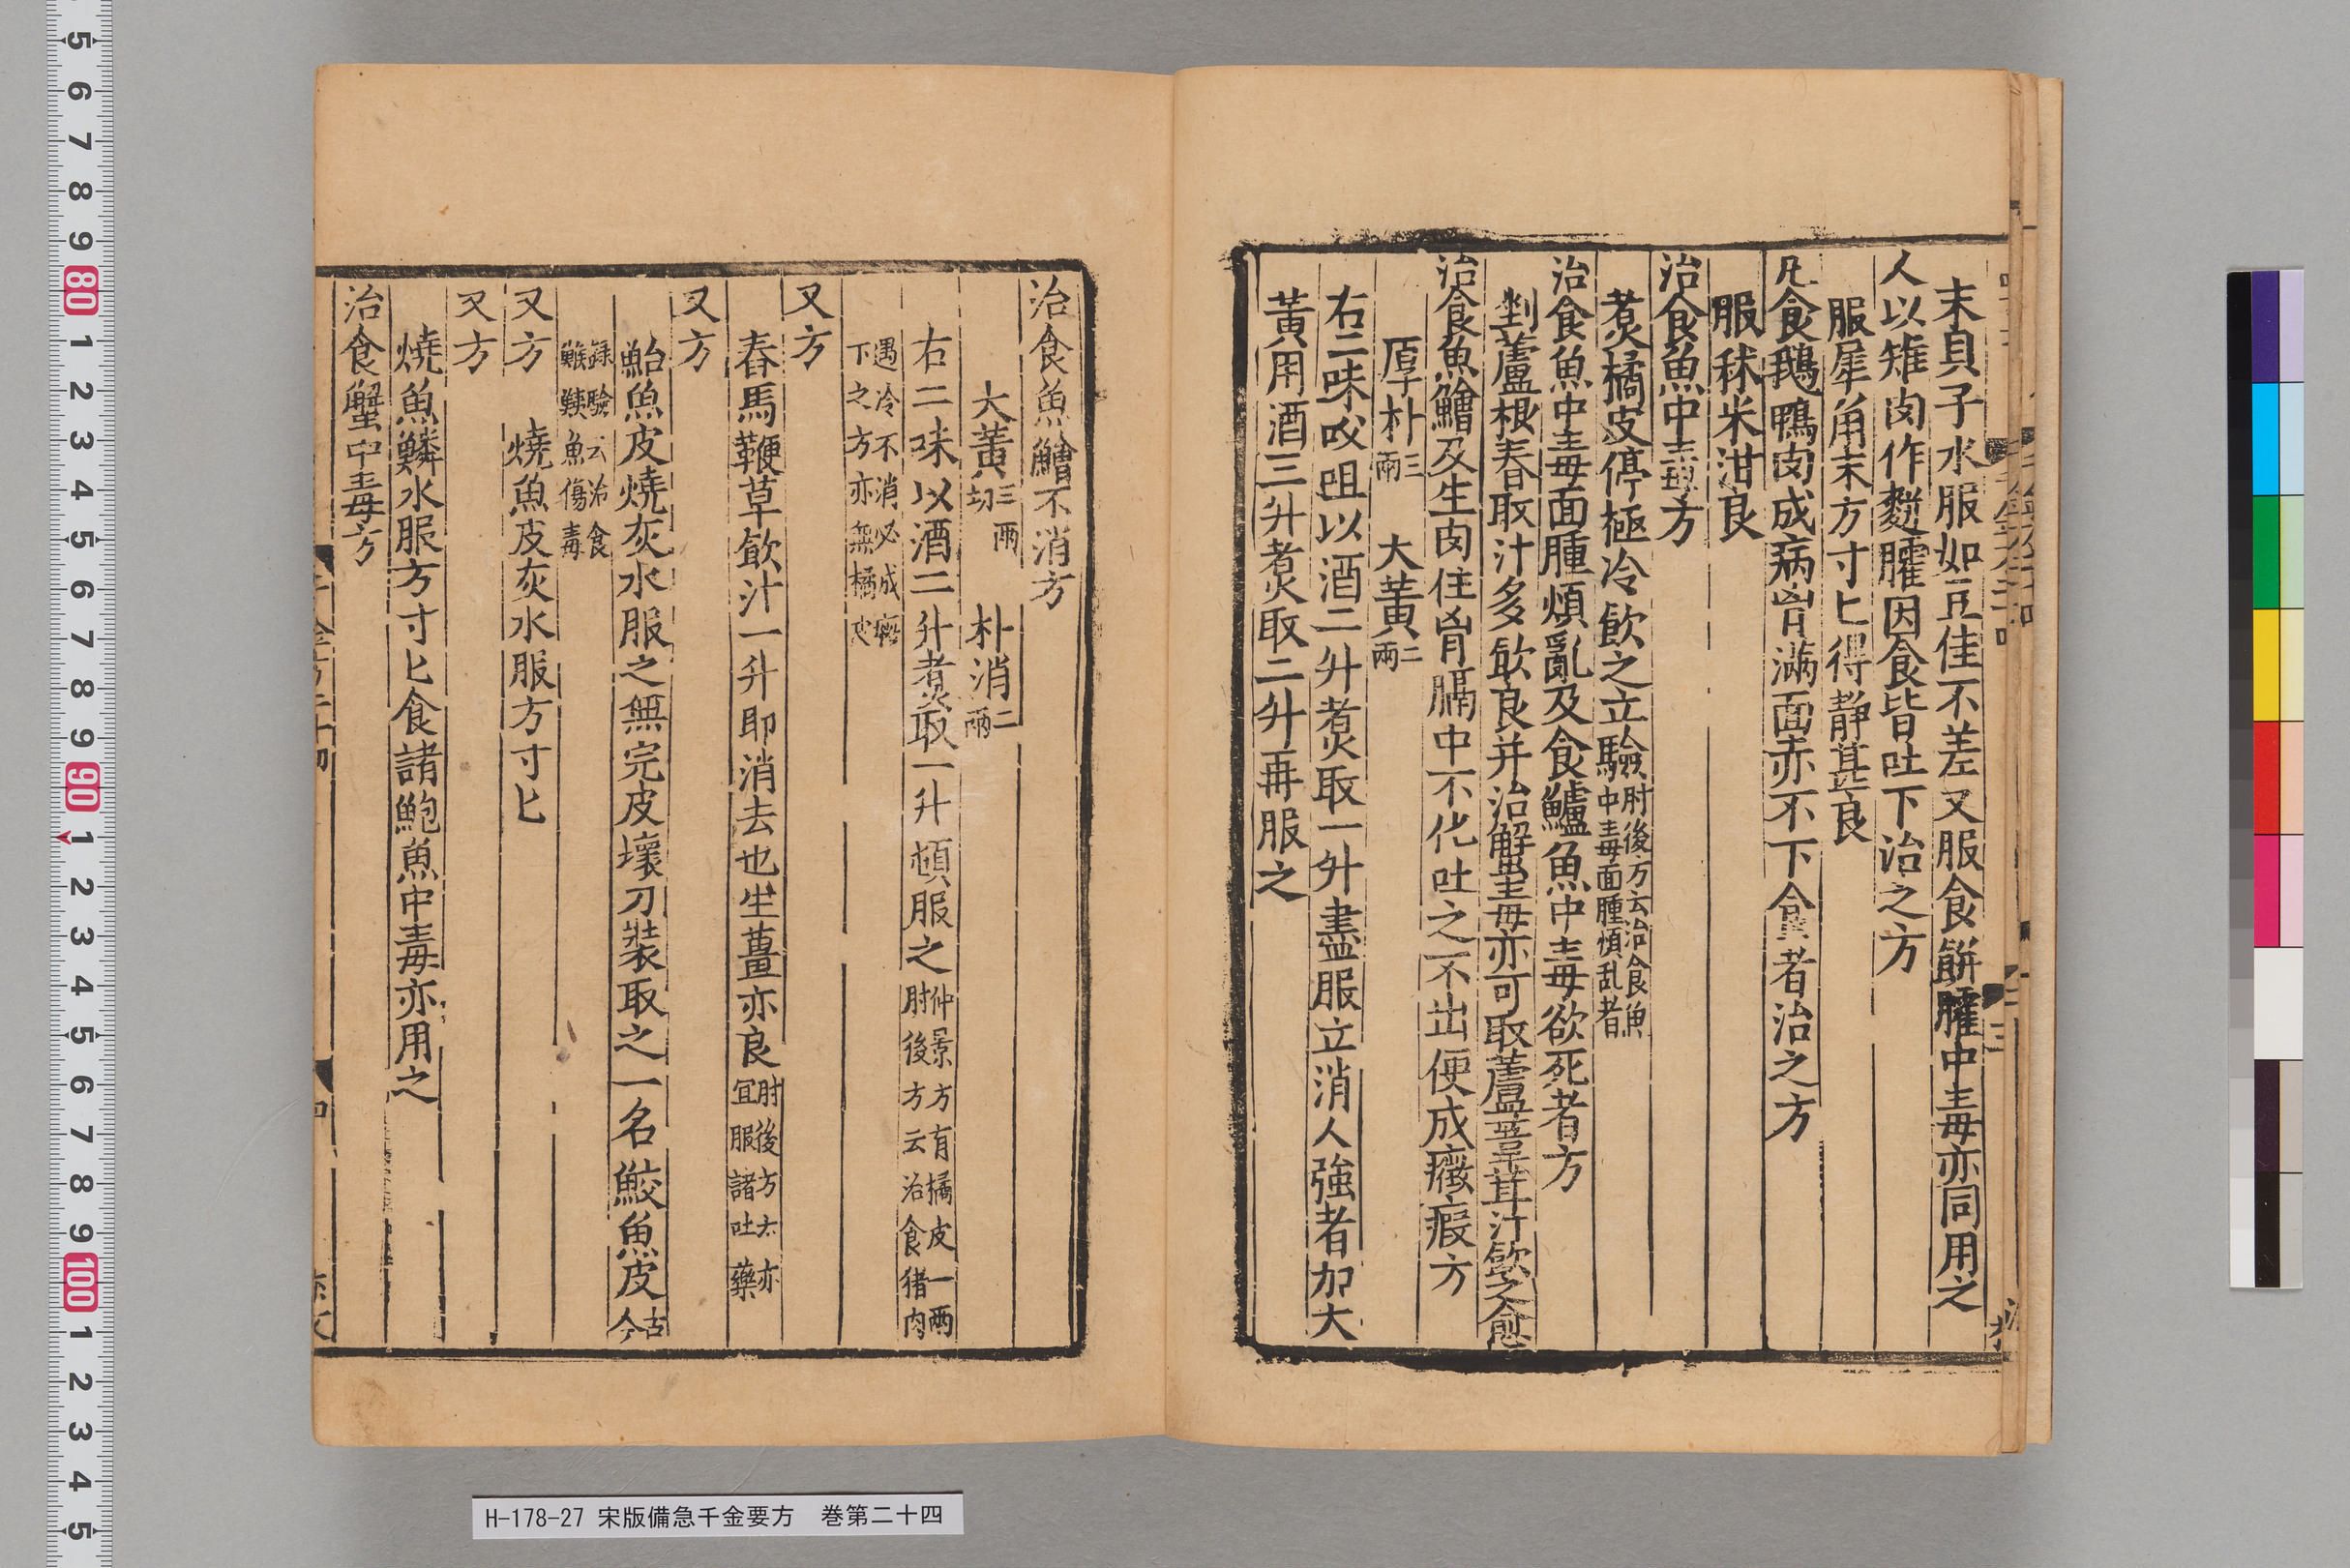 末貝子水服如豆佳不差又服食餅臛中毒亦同用之
人以雉肉作麫臛因食皆吐下治之方
服犀角末方寸匕得靜甚良
凡食鵝鴨肉成病胷滿面赤不下食者治之方
服秫米泔良
治食魚中毒方
煑橘皮停極冷飲之立驗肘後方云治食魚中毒面腫煩乱者
治食魚中毒面腫煩亂及食鱸魚中毒欲死者方
剉蘆根舂取汁多飲良并治蟹毒亦可取蘆葦茸汁飲之愈
治食魚鱠及生肉住胷膈中不化吐之不出便成癥瘕方
厚朴三兩 大黃二兩
右二味㕮咀以酒二升煑取一升盡服立消人強者加大
黃用酒三升煑取二升再服之
治食魚鱠不消方
大黃三兩切 朴消二兩
右二味以酒二升煑取一升頓服之仲景方有橘皮一兩肘後方云治食猪肉
遇冷不消必成癥下之方亦無橘皮
又方
舂馬鞭草飲汁一升即消去也生薑亦良肘後方云亦宜服諸吐藥
又方
鮐魚皮燒灰水服之無完皮壞刀裝取之一名鮫魚皮古今
録驗云治食鯸鮧魚傷毒
又方 燒魚皮灰水服方寸匕
又方
燒魚鱗水服方寸匕食諸鮑魚中毒亦用之
治食蟹中毒方
H-178-27 宋版備急千金要方 巻第二十四
5 6 7 8 9 80 1 2 3 4 5 6 7 8 9 90 1 2 3 4 5 6 7 8 9 100 1 2 3 4 5